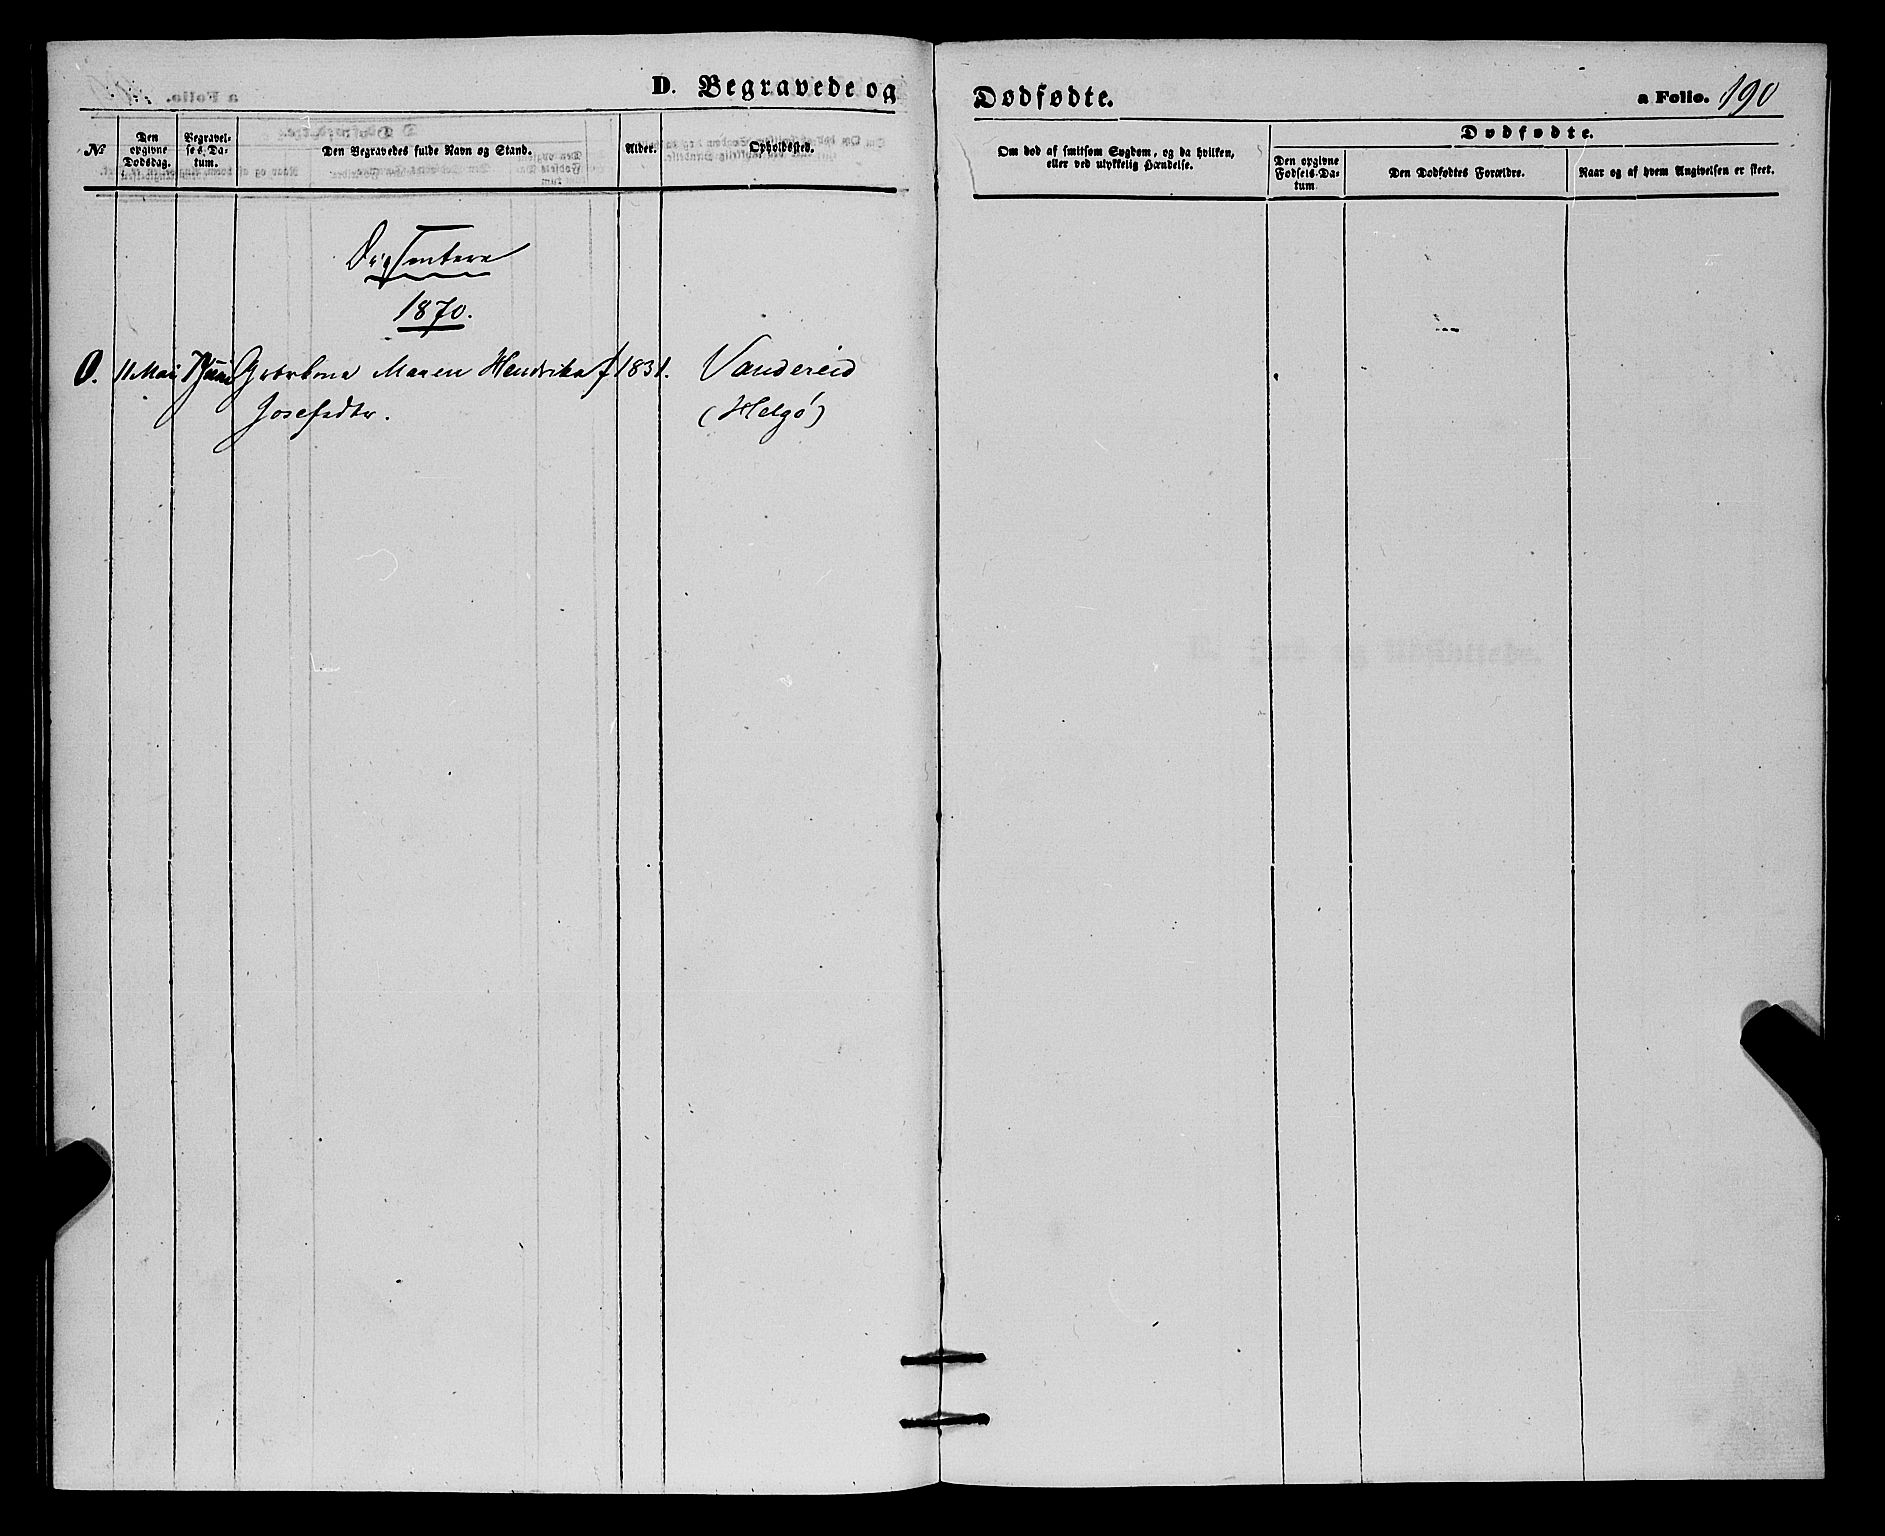 D. Begravede og Dødfødte.
a Folio. 190
Dødfødte.
No
Den opgivne Dødsdag.
Begravelses-Datum.
Den Begravedes fulde Navn og Stand.
Alder.
Opholdssted.
Om død af smitsom Sygdom, og da hvilken,
eller ved ulykkelig Hændelse.
Den opgivne Fødsels-Datum
Den Dødfødtes Forældre.
Naar og af hvem Angivelsen er skeet.
Dissentere
1870.
0. 11 Mai Juni Maren Hendrika f 1831. Vandereid
Josefsdtr. (Helgö)